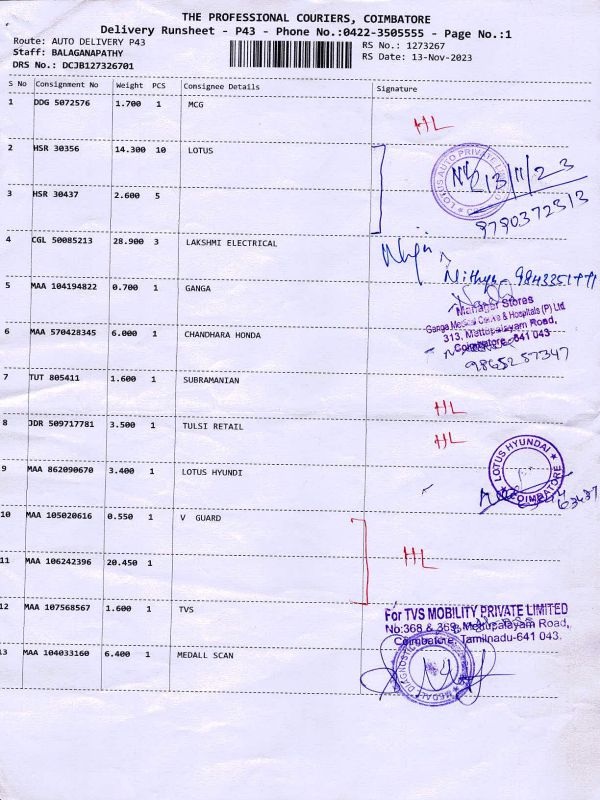 THE PROFESSIONAL COURIERS, COIMBATORE
Delivery Runsheet - P43 - Phone No.:0422-3505555 - Page No.:1
Route: AUTO DELIVERY P43 RS No.: 1273267
Staff: BALAGANAPATHY RS Date: 13-Nov-2023
DRS No.: DCJB127326701
S No Consignment No Weight PCS Consignee Details Signature
1 DDG 5072576 1.700 1 MCG
HL
2 HSR 30356 14.300 10 LOTUS
LOTUS AUTO PRIVATE
13/11/23
3 HSR 30437 2.600 5
9790372313
4 CGL 50085213 28.900 3 LAKSHMI ELECTRICAL
Nithya - 9843351
5 MAA 104194822 0.700 1 GANGA
Manager Stores
Ganga Medical Centre & Hospitals (P) Ltd
313, Mettupalayam Road,
Coimbatore - 641 043
6 MAA 570428345 6.000 1 CHANDHARA HONDA
9865257347
7 TUT 805411 1.600 1 SUBRAMANIAN
HL
8 JDR 509717781 3.500 1 TULSI RETAIL
HL
9 MAA 862090670 3.400 1 LOTUS HYUNDI
LOTUS HYUNDAI
COIMBATORE
63437
10 MAA 105020616 0.550 1 V GUARD
HL
11 MAA 106242396 20.450 1
12 MAA 107568567 1.600 1 TVS
For TVS MOBILITY PRIVATE LIMITED
No:368 & 369, Mettupalayam Road,
Coimbatore, Tamilnadu-641 043.
13 MAA 104033160 6.400 1 MEDALL SCAN
MEDALL DIAGNOSTIC